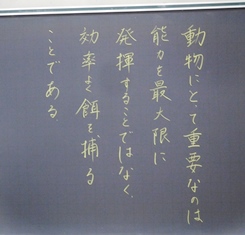 動物にとって重要なのは
能力を最大限に
発揮することではなく、
効率よく餌を捕る
ことである。